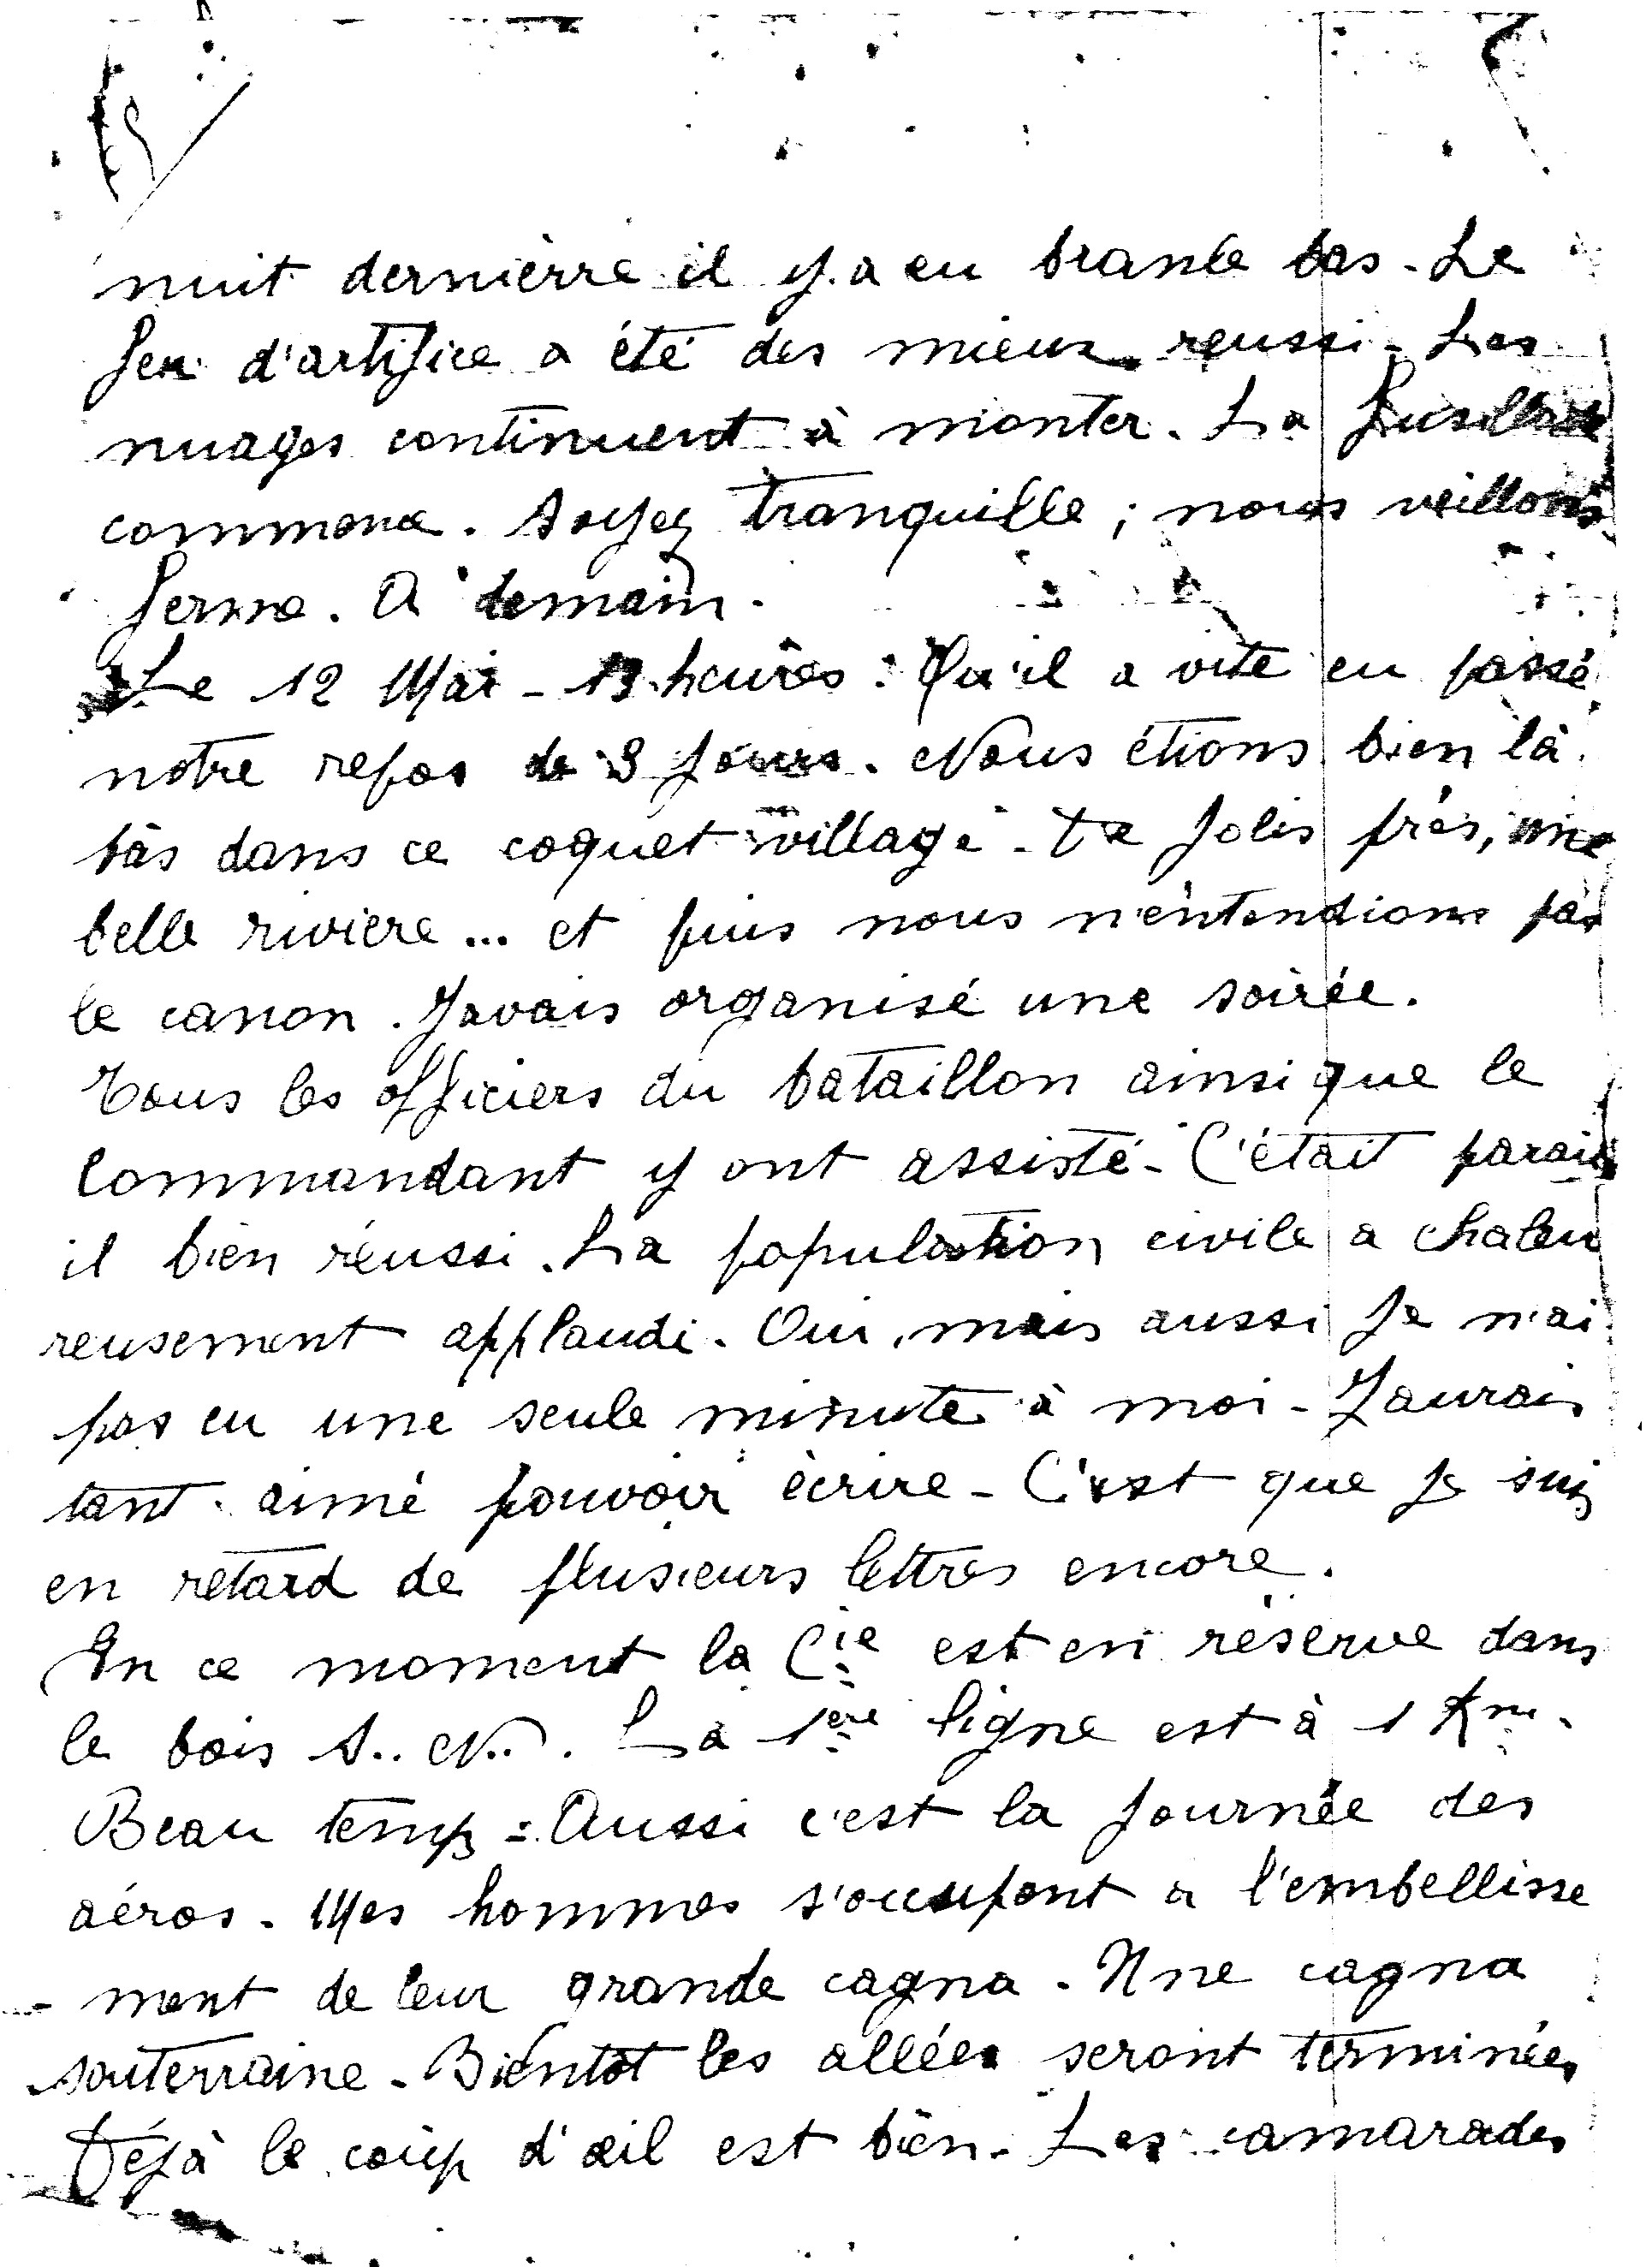 nuit dernièrre il y a eu branle bas - Le
feu d'artifice a été des mieux reussi - Les
nuages continuent à monter. La fusillade
commence. Soyez tranquille ; nous veillons
ferme. A demain.
Le 12 Mai - 13 heures : Qu'il a vite eu passé
notre repos de 8 jours. Nous étions bien là
bàs dans ce coquet village - De jolis près, une
belle rivière ... et puis nous n'entendions pas
le canon. J'avais organisé une soirée.
Tous les officiers du bataillon ainsi que le
Commandant y ont assisté - C'était parait
il bien réussi. La population civile a chaleu
reusement applaudi. Oui, mais aussi je n'ai
pas eu une seule minute à moi - J'aurais
tant aimé pouvoir écrire - C'est que je suis
en retard de plusieurs lettres encore.
En ce moment la Cie est en réserve dans
le bois S.. N... La 1ère ligne est à 1 Km.
Beau temps = Aussi c'est la journée des
aéros. Mes hommes s'occupent à l'embellisse
- ment de leur grande cagna. Une cagna
souterraine - Bientôt les allées seront terminées
Déjà le coup d'œil est bien. Les camarades